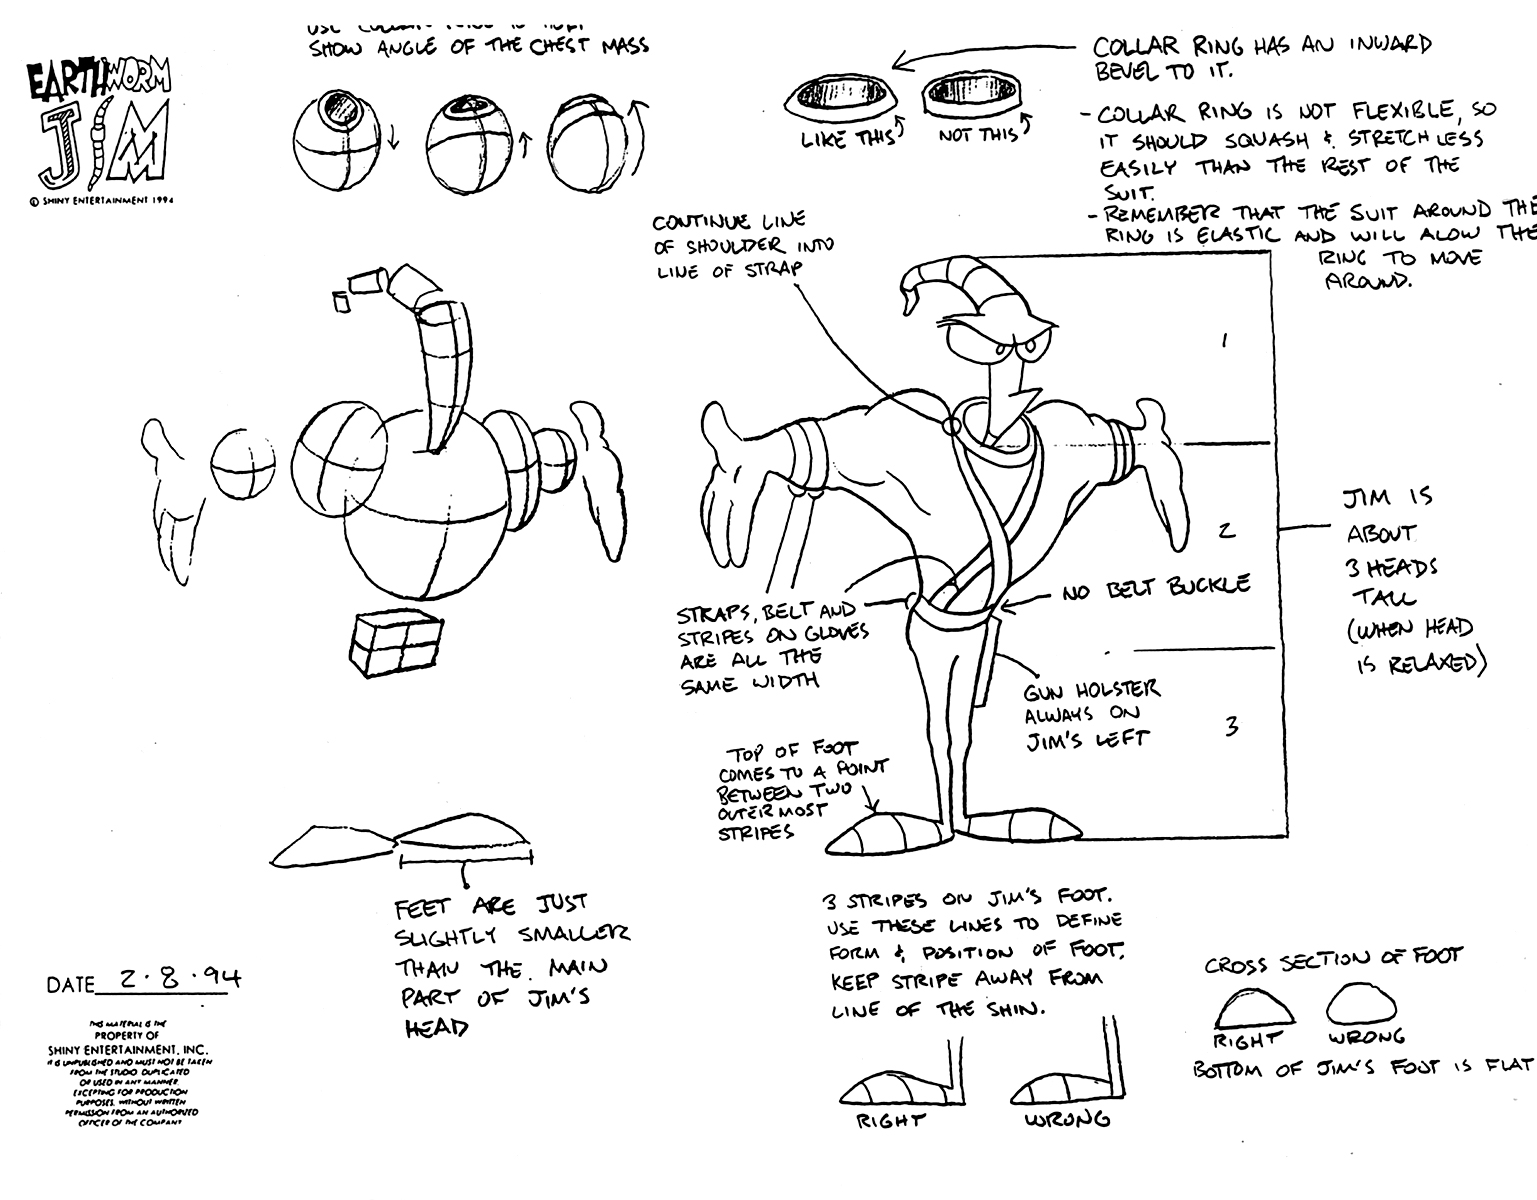 SHOW ANGLE OF THE CHEST MASS
EARTHWORM
JIM
© SHINY ENTERTAINMENT 1994
COLLAR RING HAS AN INWARD
BEVEL TO IT.
LIKE THIS
NOT THIS
- COLLAR RING IS NOT FLEXIBLE, SO
IT SHOULD SQUASH & STRETCH LESS
EASILY THAN THE REST OF THE
SUIT.
- REMEMBER THAT THE SUIT AROUND THE
RING IS ELASTIC AND WILL ALOW THE
RING TO MOVE
AROUND.
CONTINUE LINE
OF SHOULDER INTO
LINE OF STRAP
1
2
3
JIM IS
ABOUT
3 HEADS
TALL
(WHEN HEAD
IS RELAXED)
NO BELT BUCKLE
STRAPS, BELT AND
STRIPES ON GLOVES
ARE ALL THE
SAME WIDTH
GUN HOLSTER
ALWAYS ON
JIM'S LEFT
TOP OF FOOT
COMES TO A POINT
BETWEEN TWO
OUTER MOST
STRIPES
FEET ARE JUST
SLIGHTLY SMALLER
THAN THE MAIN
PART OF JIM'S
HEAD
3 STRIPES ON JIM'S FOOT.
USE THESE LINES TO DEFINE
FORM & POSITION OF FOOT.
KEEP STRIPE AWAY FROM
LINE OF THE SHIN.
RIGHT
WRONG
CROSS SECTION OF FOOT
RIGHT
WRONG
BOTTOM OF JIM'S FOOT IS FLAT
DATE 2·8·94
THIS MATERIAL IS THE
PROPERTY OF
SHINY ENTERTAINMENT, INC.
IT IS UNPUBLISHED AND MUST NOT BE TAKEN
FROM THE STUDIO DUPLICATED
OR USED IN ANY MANNER,
EXCEPTING FOR PRODUCTION
PURPOSES, WITHOUT WRITTEN
PERMISSION FROM AN AUTHORIZED
OFFICER OF THE COMPANY